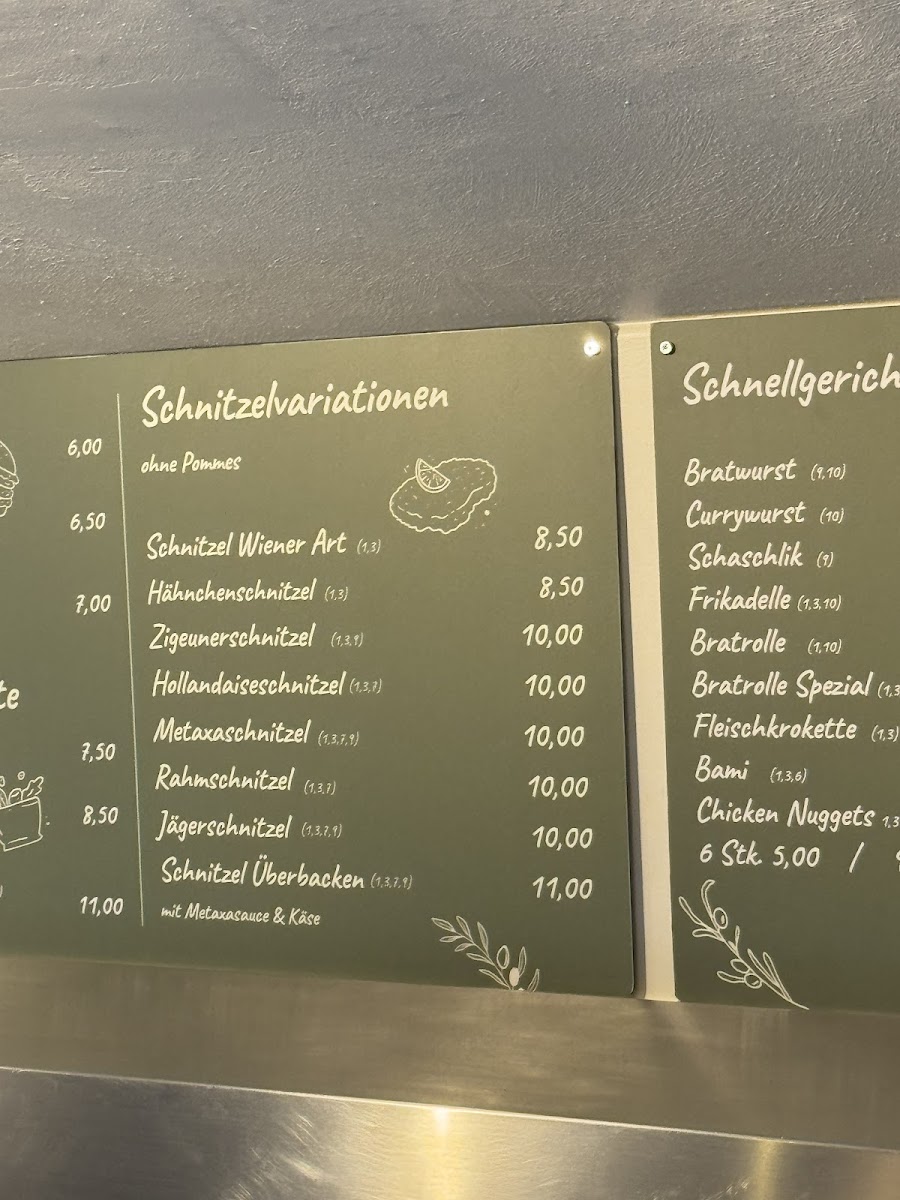 6,00
6,50
7,00
te
7,50
8,50
11,00
Schnitzelvariationen
ohne Pommes
Schnitzel Wiener Art (1,3) 8,50
Hähnchenschnitzel (1,3) 8,50
Zigeunerschnitzel (1,3,9) 10,00
Hollandaiseschnitzel (1,3,7) 10,00
Metaxaschnitzel (1,3,7,9) 10,00
Rahmschnitzel (1,3,7) 10,00
Jägerschnitzel (1,3,7,9) 10,00
Schnitzel Überbacken (1,3,7,9) 11,00
mit Metaxasauce & Käse
Schnellgerich
Bratwurst (9,10)
Currywurst (10)
Schaschlik (9)
Frikadelle (1,3,10)
Bratrolle (1,10)
Bratrolle Spezial (1,3
Fleischkrokette (1,3)
Bami (1,3,6)
Chicken Nuggets 1,3
6 Stk. 5,00 /